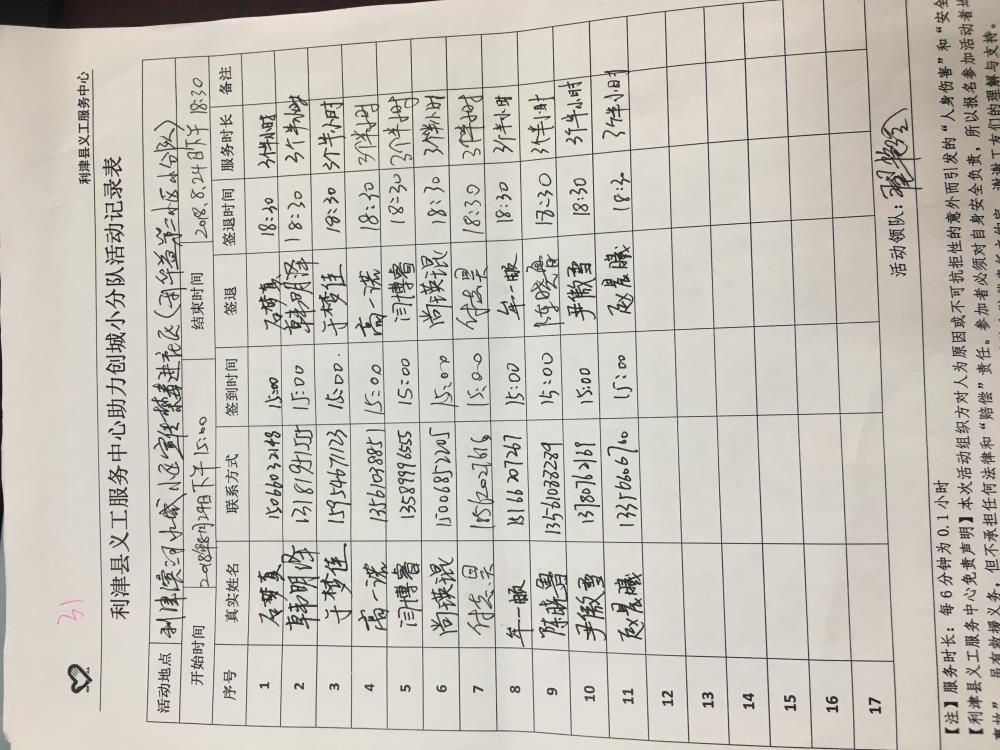 31
利津县义工服务中心
利津县义工服务中心助力创城小分队活动记录表
活动地点
开始时间 2018年8月24日下午15:00 结束时间 2018.8.24日下午18:30
序号 真实姓名 联系方式 签到时间 签退 签退时间 服务时长 备注
1 石梦真 15066032148 15:00 石梦真 18:30 3个半小时
2 韩明泽 15:00 韩明泽 18:30 3个半小时
3 于梦佳 15954671123 15:00. 于梦佳 18:30 3个半小时
4 高一诺 13561038851 15:00 高一诺 18:30 3个半小时
5 闫博睿 13589996555 15:00 闫博睿 18:30 3个半小时
6 尚瑛琨 15006852205 15:00 尚瑛琨 18:30 3个半小时
7 15:00 18:30 3个半小时
8 牟一 18166207267 15:00 牟一 18:30 3个半小时
9 陈晓 13561038289 15:00 陈晓 18:30 3个半小时
10 尹傲雪 13780762169 15:00 尹傲雪 18:30 3个半小时
11 赵晨曦 13356606700 15:00 赵晨曦 18:30 3个半小时
12
13
14
15
16
17
活动领队：
【注】服务时长：每6分钟为0.1小时
【利津县义工服务中心免责声明】本次活动组织方对人为原因或不可抗拒性的意外而引发的“人身伤害”和“安全
虽有救援义务，但不承担任何法律和“赔偿”责任。参加者必须对自身安全负责，所以报名参加活动者
谢谢义工友们的理解与支持。